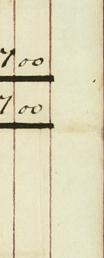 7 00
7 00